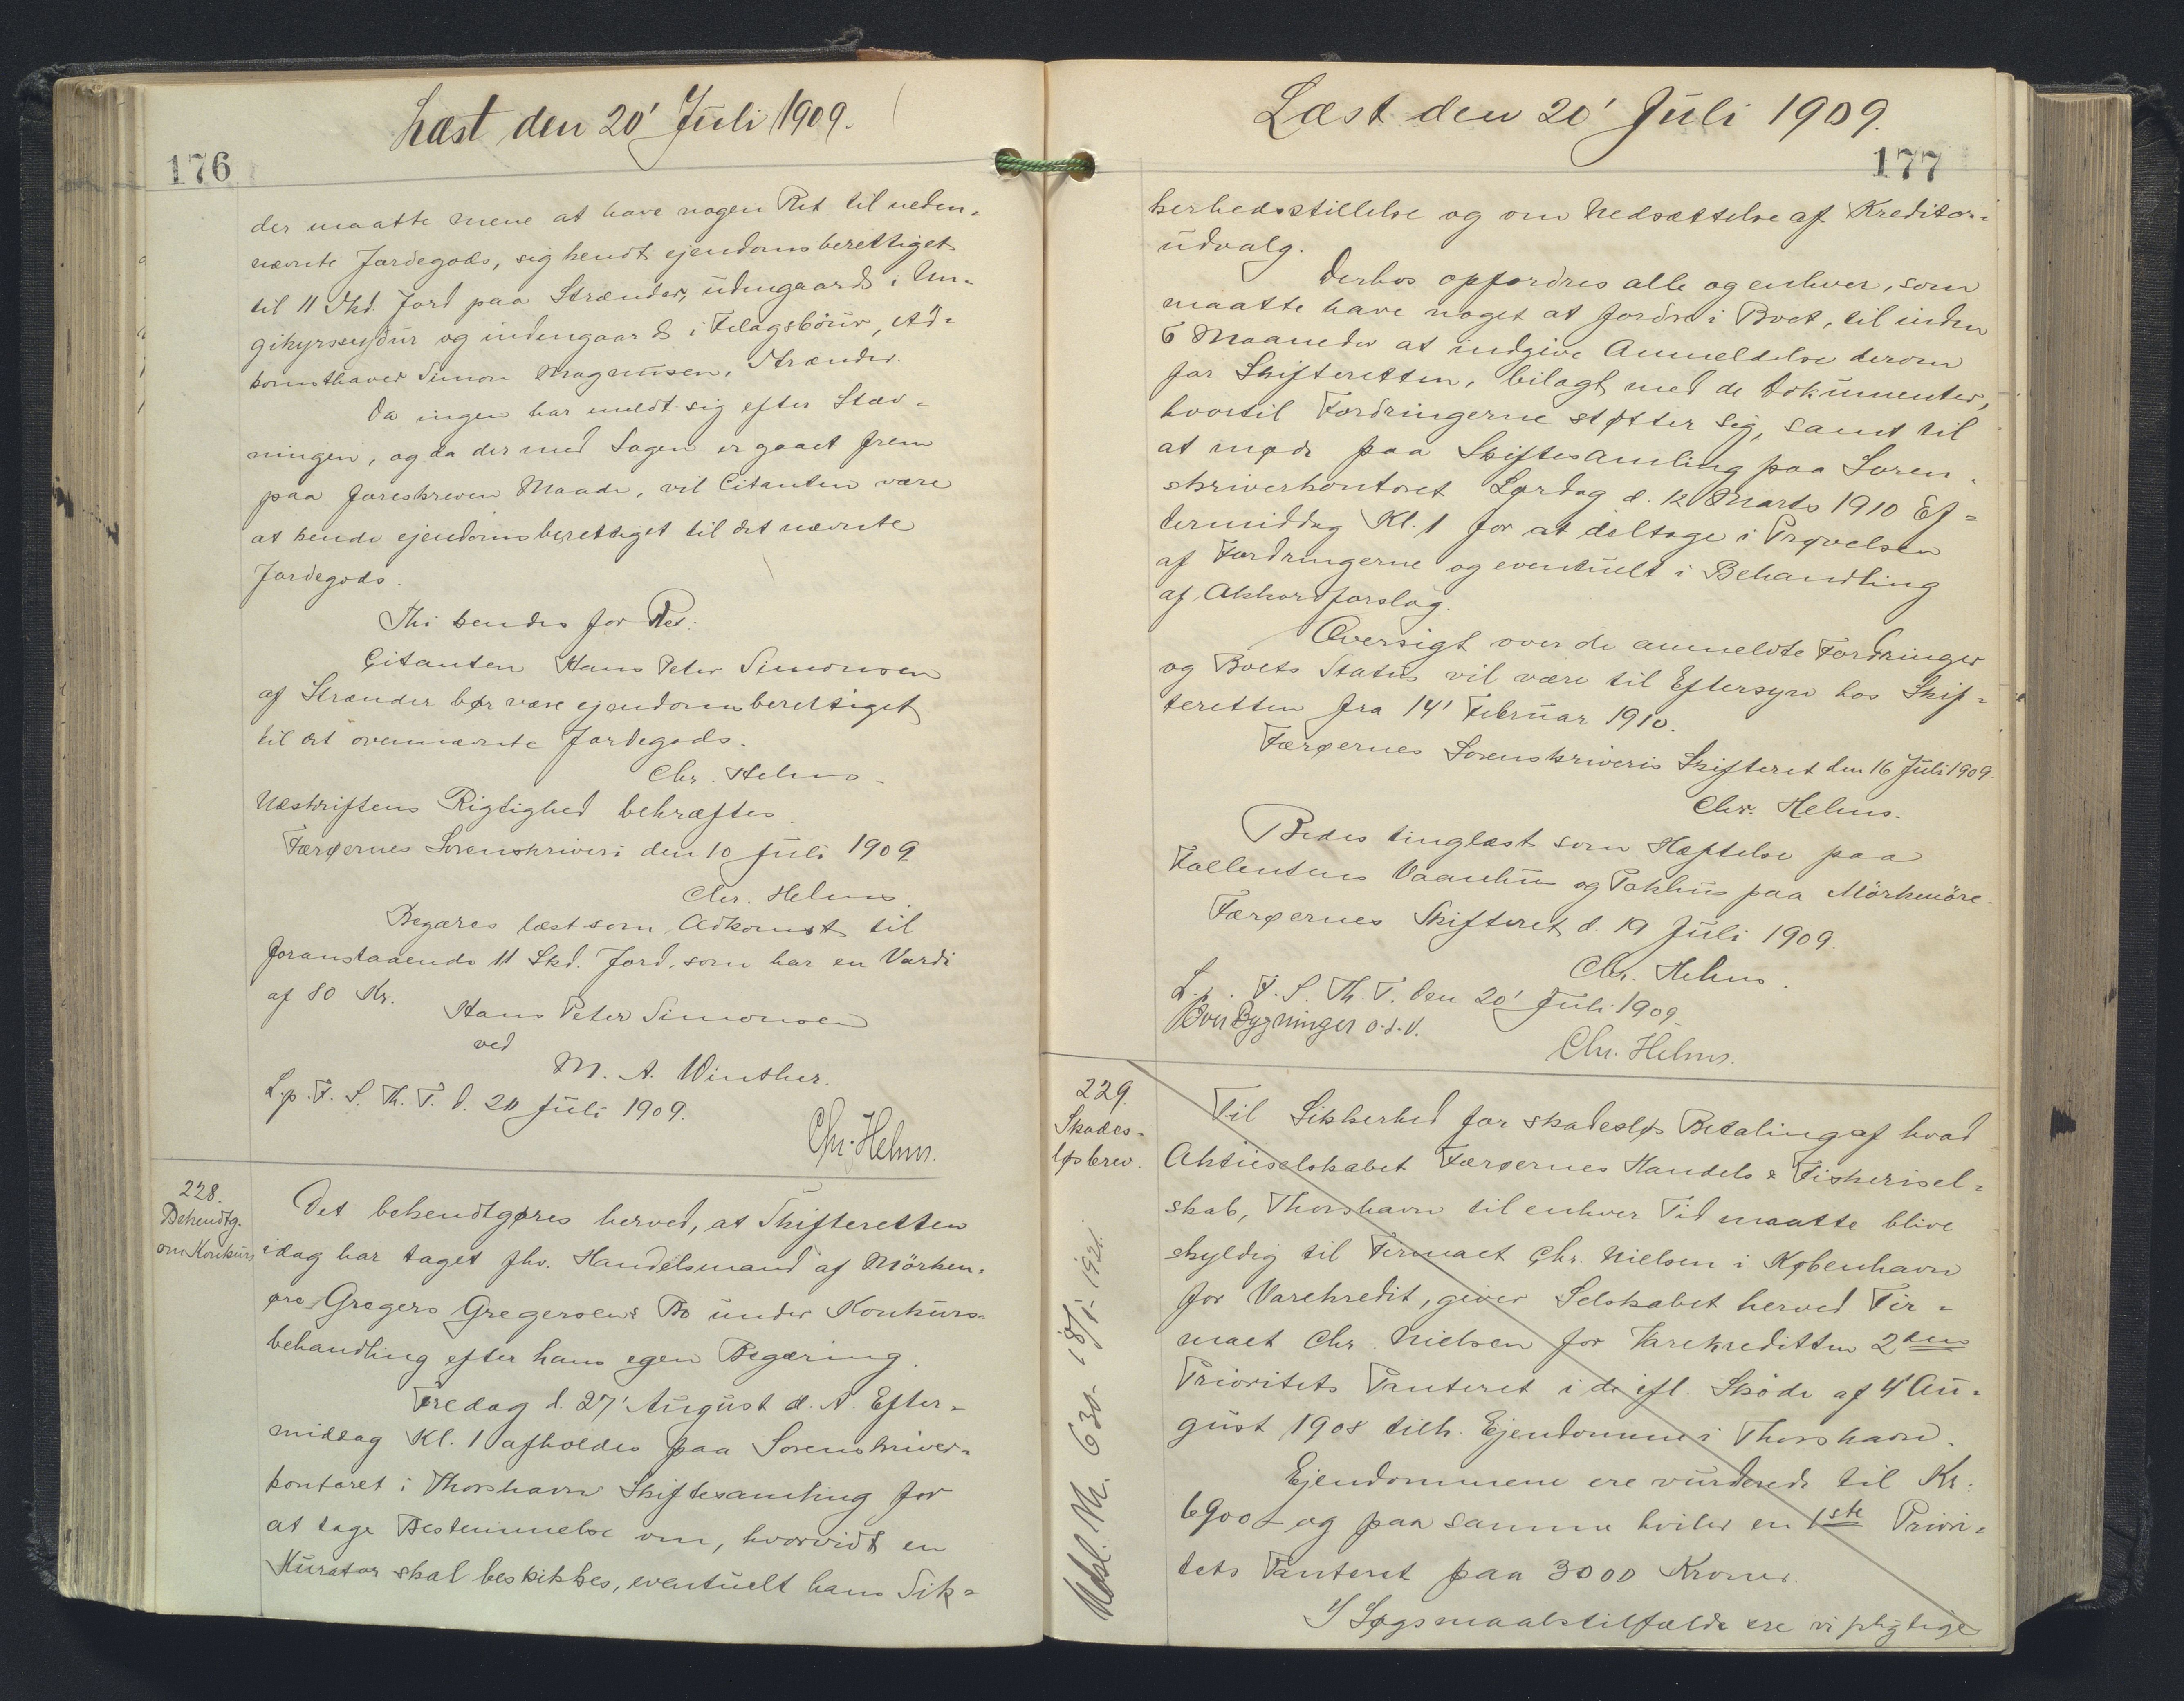 Læst den 20' Juli 1909.
176
der maatte mene at have nogen Ret til neden-
nævnte Jordegods, sig kendt ejendomsberettiget
til 11 Skd. Jord paa Strænder, udengaards i Un-
gikyrssyður og indengaards i Felagsbøur, Ad-
komsthaver Simon Magnusen, Strænder.
Da ingen har meldt sig efter Stæv-
ningen, og da der med Sagen er gaaet frem
paa foreskreven Maade, vil Citanten være
at kende ejendomsberettiget til det nævnte
Jordegods.
Thi kendes for Ret:
Citanten Hans Peter Simonsen
af Strænder bør være ejendomsberettiget
til det ovennævnte Jordegods.
Chr. Helms.
Udskriftens Rigtighed bekræftes.
Færøernes Sorenskriveri den 10 Juli 1909
Chr. Helms.
Begæres læst som Adkomst til
foranstaaende 11 Skd. Jord, som har en Værdi
af 80 Kr.
Hans Peter Simonsen
ved
M. A. Winther.
L. p. F. S. Th. T. d. 20 Juli 1909.
Chr. Helms.
228.
Bekendtg.
om Konkurs
Det bekendtgøres herved, at Skifteretten
idag har taget fhv. Handelsmand af Mörken-
øre Gregers Gregersens Bo under Konkurs-
behandling efter hans egen Begæring.
Fredag d. 27' August d. A. Efter-
middag Kl. 1 afholdes paa Sorenskriver-
kontoret i Thorshavn Skiftesamling for
at tage Bestemmelse om, hvorvidt en
Kurator skal beskikkes, eventuelt hans Sik-
Læst den 20' Juli 1909.
177
kerhedsstillelse og om Nedsættelse af Kreditor-
udvalg.
Derhos opfordres alle og enhver, som
maatte have noget at fordre i Boet, til inden
6 Maaneder at indgive Anmeldelse derom
for Skifteretten, bilagt med de Dokumenter,
hvortil Fordringerne støtter sig, samt til
at møde paa Skiftesamling paa Soren-
skriverkontoret Lørdag d. 12 Marts 1910 Ef-
termiddag Kl. 1 for at deltage i Prøvelsen
af Fordringerne og eventuelt i Behandling
af Akkordforslag.
Oversigt over de anmeldte Fordringer
og Boets Status vil være til Eftersyn hos Skif-
teretten fra 14' Februar 1910.
Færøernes Sorenskriveris Skifteret den 16 Juli 1909.
Chr. Helms.
Bedes tinglæst som Hæftelse paa
Fallentens Vaanhus og Pakhus paa Mörkenöre.
Færøernes Skifteret d. 19 Juli 1909.
Chr. Helms.
L. p. F. S. Th. T. den 20' Juli 1909.
Over Bygninger o. s. v.
Chr. Helms.
229.
Skades-
løsbrev.
Til Sikkerhed for skadesløs Betaling af hvad
Aktieselskabet Færøernes Handels & Fiskerisel-
skab, Thorshavn til enhver Tid maatte blive
skyldig til Firmaet Chr. Nielsen i København
for Varekredit, giver Selskabet herved Fir-
maet Chr. Nielsen for Varekreditten 2den
Prioritets Panteret i de ifl. Skøde af 4' Au-
gust 1908 tilh. Ejendomme i Thorshavn.
Ejendommene ere vurderede til Kr.
6900 og paa samme hviler en 1ste Priori-
tets Panteret paa 3000 Kroner.
I Søgsmaalstilfælde ere vi pligtige
Udsl. Nr. 630 - 18/1 - 1921.